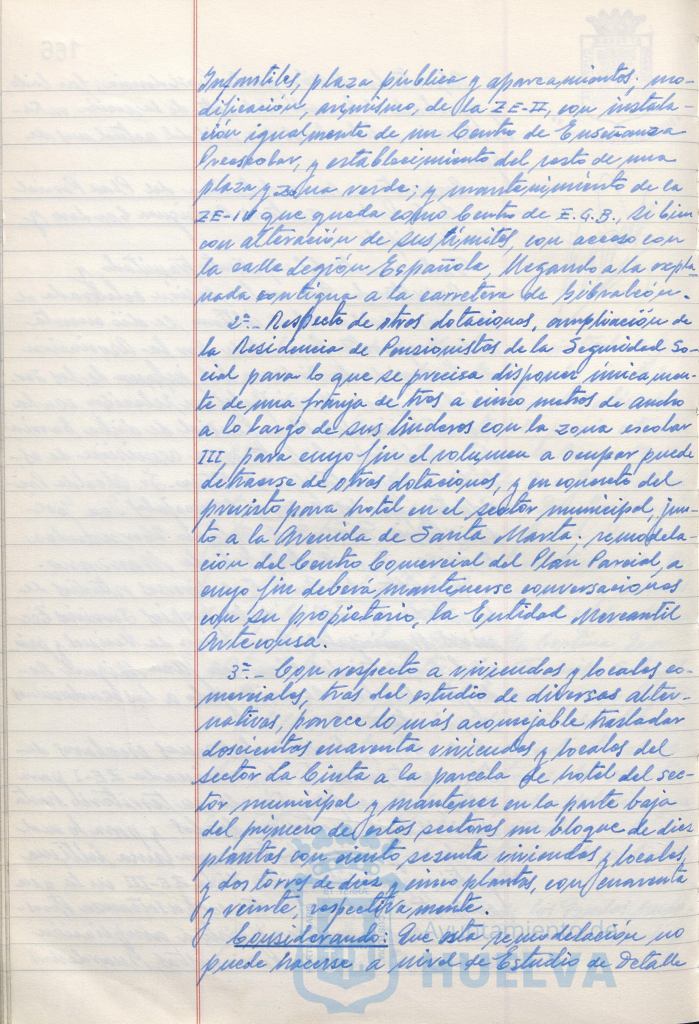 Infantiles, plaza pública y aparcamientos; mo-
dificación, asimismo, de la ZE-II, con instala-
ción igualmente de un Centro de Enseñanza
Preescolar, y establecimiento del resto de una
plaza y zona verde; y mantenimiento de la
ZE-III que queda como Centro de E.G.B., si bien
con alteración de sus límites, con acceso con
la calle Legión Española, llegando a la expla-
nada contigua a la carretera de Gibraleón.
2º.- Respecto de otras dotaciones, ampliación de
la Residencia de Pensionistas de la Seguridad So-
cial para lo que se precisa disponer únicamen-
te de una franja de tres a cinco metros de ancho
a lo largo de sus linderos con la zona escolar
III para cuyo fin el volumen a ocupar puede
detraerse de otras dotaciones, y en concreto del
previsto para hotel en el sector municipal, jun-
to a la Avenida de Santa Marta; remodela-
ción del Centro Comercial del Plan Parcial, a
cuyo fin deberá mantenerse conversaciones
con su propietario, la Entidad Mercantil
Arteconsa.
3º.- Con respecto a viviendas y locales co-
merciales, tras del estudio de diversas alter-
nativas, parece lo más aconsejable trasladar
doscientas cuarenta viviendas y locales del
sector La Cinta a la parcela de hotel del sec-
tor municipal y mantener en la parte baja
del primero de estos sectores un bloque de diez
plantas con ciento sesenta viviendas y locales,
y dos torres de diez y cinco plantas, con cuarenta
y veinte, respectivamente.
Considerando: Que esta remodelación no
puede hacerse a nivel de Estudio de Detalle
Ayuntamiento de
HUELVA